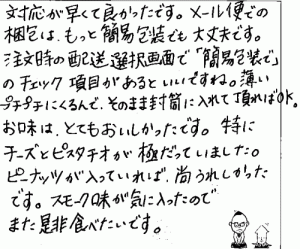 対応が早くて良かったです。メール便での
梱包は、もっと簡易包装でも大丈夫です。
注文時の配送選択画面で「簡易包装で」
のチェック項目があるといいですね。薄い
プチプチにくるんで、そのまま封筒に入れて頂ればOK。
お味は、とてもおいしかったです。特に
チーズとピスタチオが極だっていました。
ピーナッツが入っていれば、尚うれしかった
です。スモーク味が気に入ったので
また是非食べたいです。